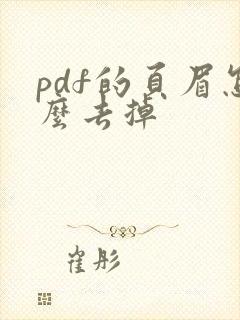 pdf的頁眉怎
麼去掉
崔彤